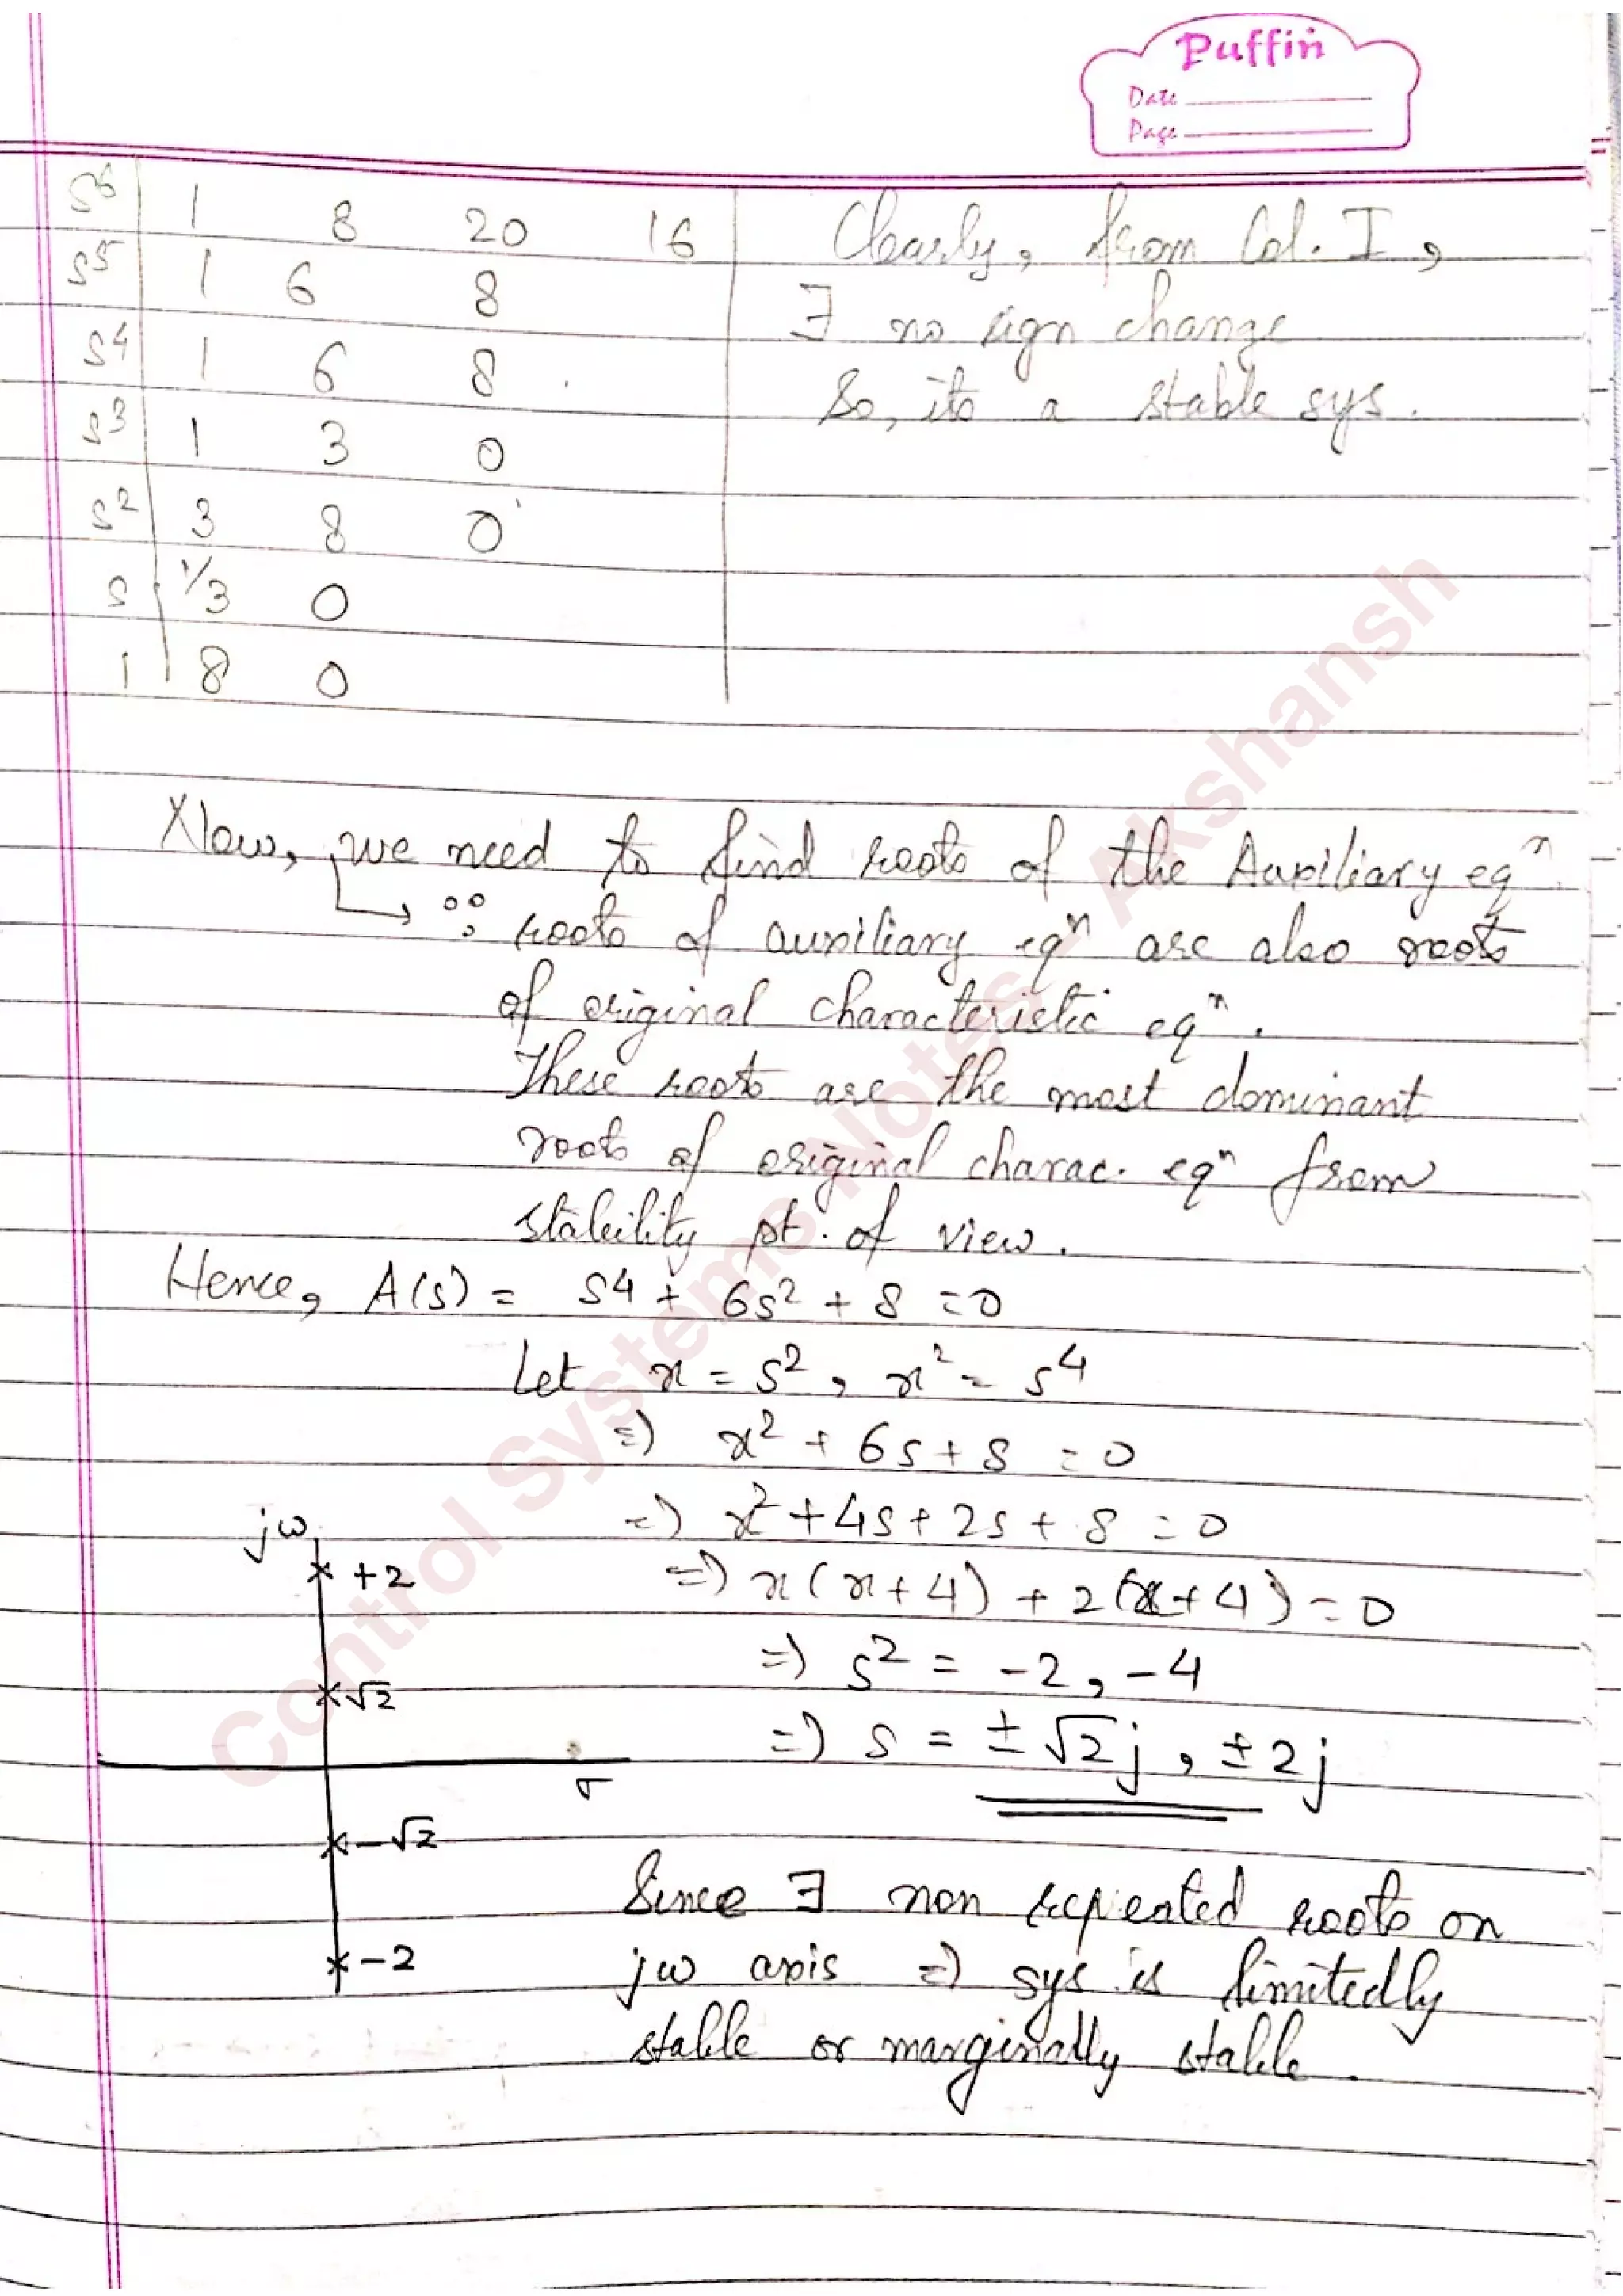 Puffin
Date
Page
s6 | 1 8 20 16 | Clearly, from Col. I,
s5 | 1 6 8 | ∃ no sign change
s4 | 1 6 8 | So, its a stable sys.
s3 | 1 3 0
s2 | 3 8 0
s | 1/3 0
1 | 8 0
Now, we need to find roots of the Auxiliary eqn.
↳ ∵ roots of auxiliary eqn are also roots
of original characteristic eqn.
These roots are the most dominant
roots of original charac. eqn from
stability pt. of view.
Hence, A(s) = s4 + 6s2 + 8 = 0
Let x = s2, x2 = s4
⇒) x2 + 6s + 8 = 0
=) x2 + 4s + 2s + 8 = 0
=) x(x+4) + 2(x+4) = 0
=) s2 = -2, -4
=) s = ± √2j, ±2j
jω
+2
√2
σ
-√2
-2
Since ∃ non repeated roots on
jω axis =) sys is limitedly
stable or marginally stable.
Control Systems Notes - Akshansh